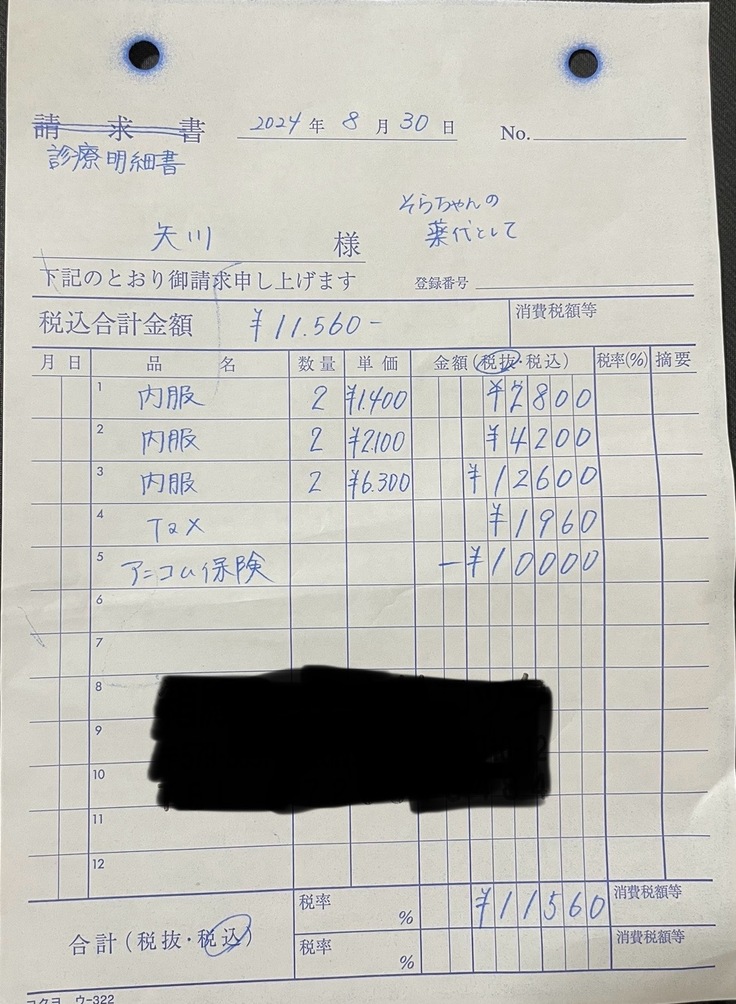 請求書
2024年8月30日
No.
診療明細書
そらちゃんの
薬代として
矢川 様
下記のとおり御請求申し上げます
登録番号
税込合計金額 ¥11.560-
消費税額等
月 日 品名 数量 単価 金額(税抜・税込) 税率(%) 摘要
1 内服 2 ¥1.400 ¥2800
2 内服 2 ¥2.100 ¥4200
3 内服 2 ¥6.300 ¥12600
4 Tax ¥1960
5 アニコム保険 -¥10000
6
7
8
9
10
11
12
合計(税抜・税込)
税率 % ¥11560 消費税額等
税率 % 消費税額等
コクヨ ウ-322